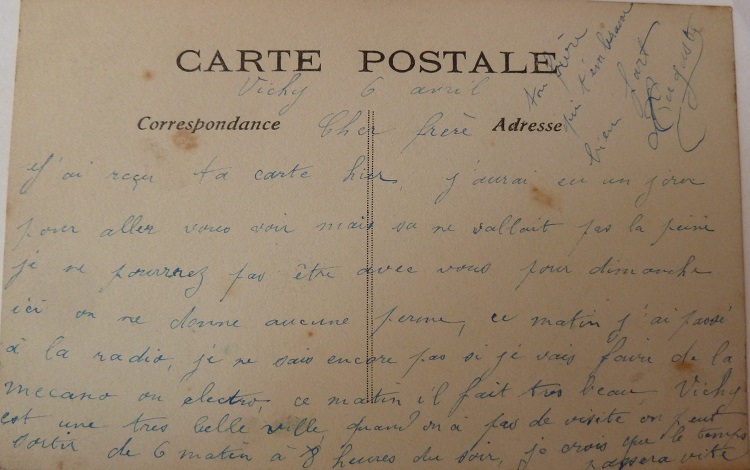 CARTE POSTALE
Vichy 6 avril
Correspondance Cher frère Adresse
J'ai reçu ta carte hier, j'aurai eu un jour
pour aller vous voir mais sa ne vallait pas la peine
je ne pourrez pas être avec vous pour dimanche
ici on ne donne aucune perme, ce matin j'ai passé
à la radio, je ne sais encore pas si je vais faire de la
mecano ou electro, ce matin il fait tres beau Vichy
est une tres belle ville, quand on à pas de visite on peut
sortir de 6 matin à 8 heures du soir, je crois que le temps
passera vite
ton frère
qui t'embrasse
bien fort
Auguste